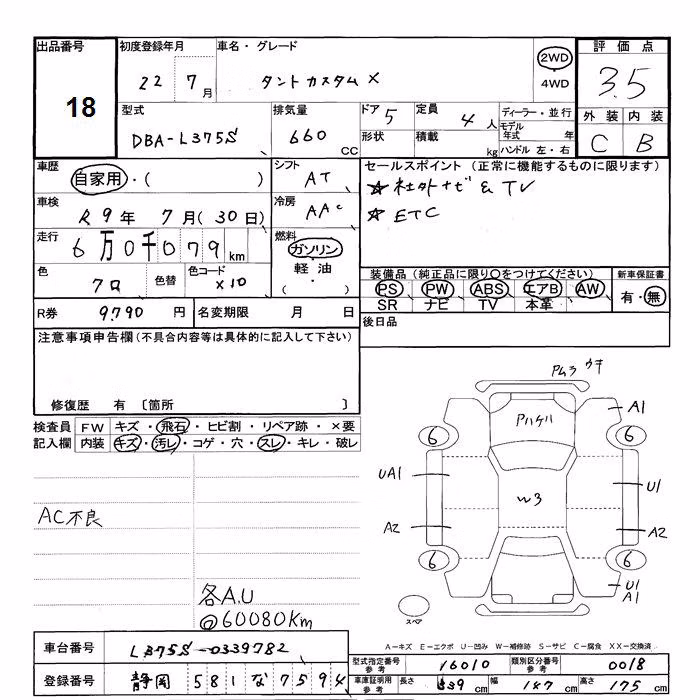 出品番号 初度登録年月 車名・グレード 評価点
18 22 7月 タントカスタム X 2WD 4WD 3.5
型式 排気量 ドア 5 定員 4人 ディーラー・並行 外装 内装
DBA-L375S 660 CC 形状 積載 kg モデル年式 年 ハンドル 左・右 C B
車歴 自家用・( ) シフト AT セールスポイント (正常に機能するものに限ります)
車検 R9年 7月(30日) 冷房 AAC ☆社外ナビ&TV
走行 6万0千079km 燃料 ガソリン・軽油・( ) ☆ETC
色 クロ 色替 色コード X10 装備品 (純正品に限り○をつけてください) 新車保証書
PS PW ABS エアB AW 有・無
SR ナビ TV 本革
R券 9790円 名変期限 月 日 後日品
注意事項申告欄 (不具合内容等は具体的に記入して下さい)
修復歴 有 〔箇所 〕
検査員 FW キズ・飛石・ヒビ割・リペア跡・×要
記入欄 内装 キズ・汚レ・コゲ・穴・スレ・キレ・破レ
AC不良
各A.U
@60080Km
Pムラ ウキ
Pハゲハ
A1
6 6
UA1 W3 U1
A2 A2
6 6
U1
A1
スペア
A-キズ E-エクボ U-凹み W-補修跡 S-サビ C-腐食 XX-交換済
車台番号 L375S-0339782
型式指定番号 参考 16010 類別区分番号 参考 0018
登録番号 静岡 581 な 7594
車庫証明用 参考 長さ 339cm 幅 147cm 高さ 175cm